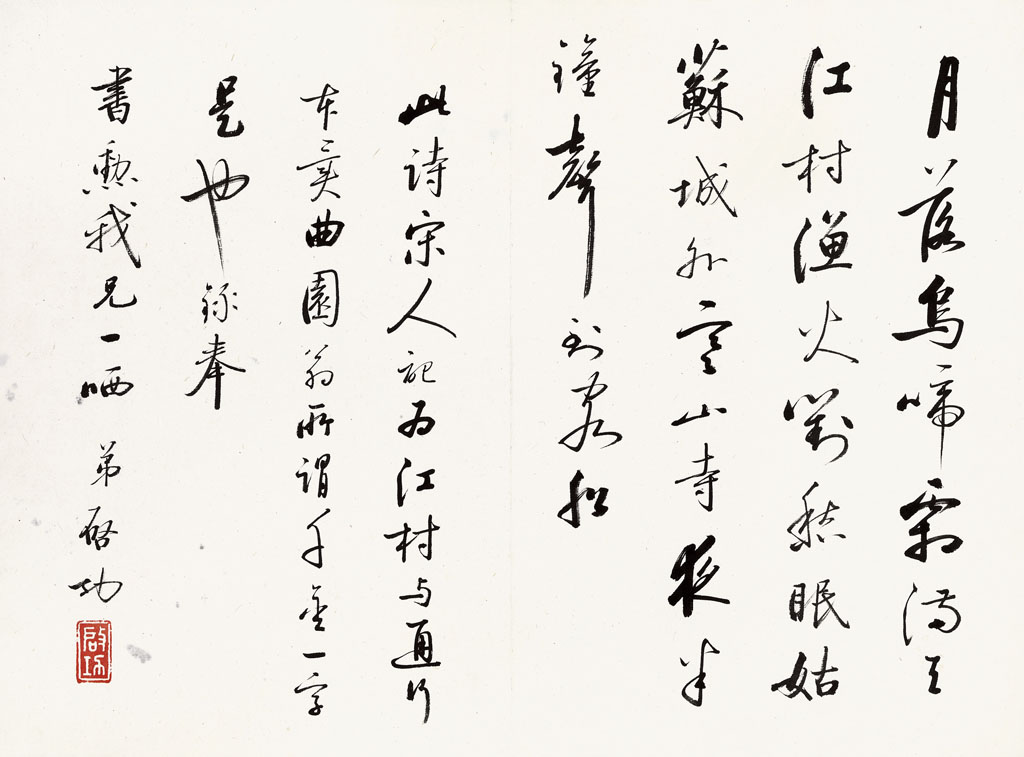 月落烏啼霜满天
江村漁火對愁眠姑
蘇城外寒山寺夜半
鐘聲到客船
此詩宋人記为江村与通行
本異曲園翁所謂千金一字
是也録奉
書勲我兄一哂 弟啓功
啟功